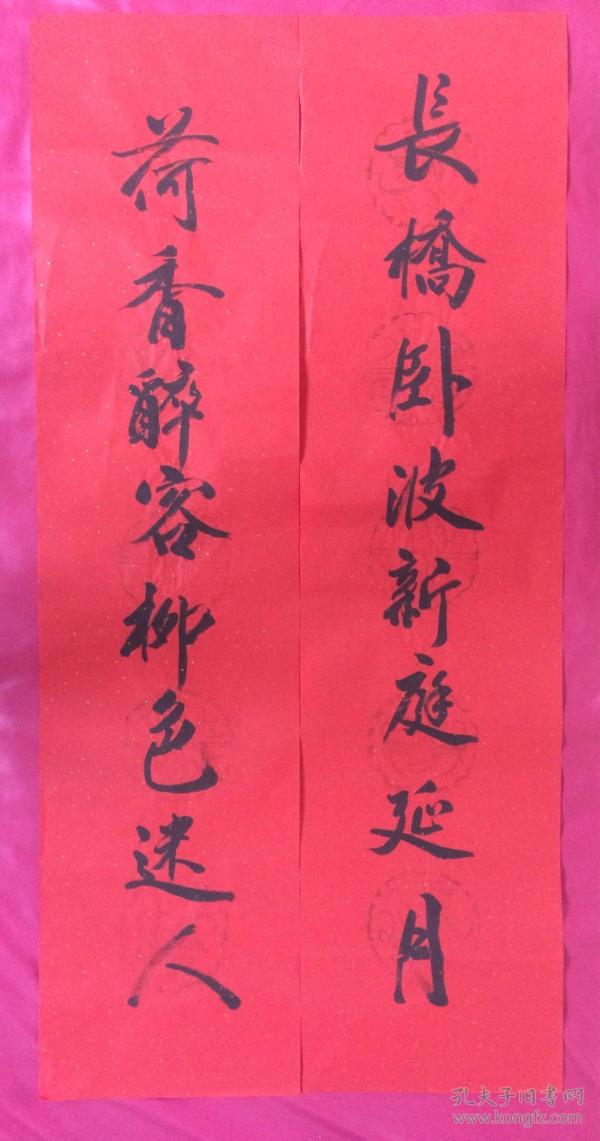 長橋卧波新庭延月
荷香醉容柳色迷人
孔夫子旧书网
www.kongfz.com